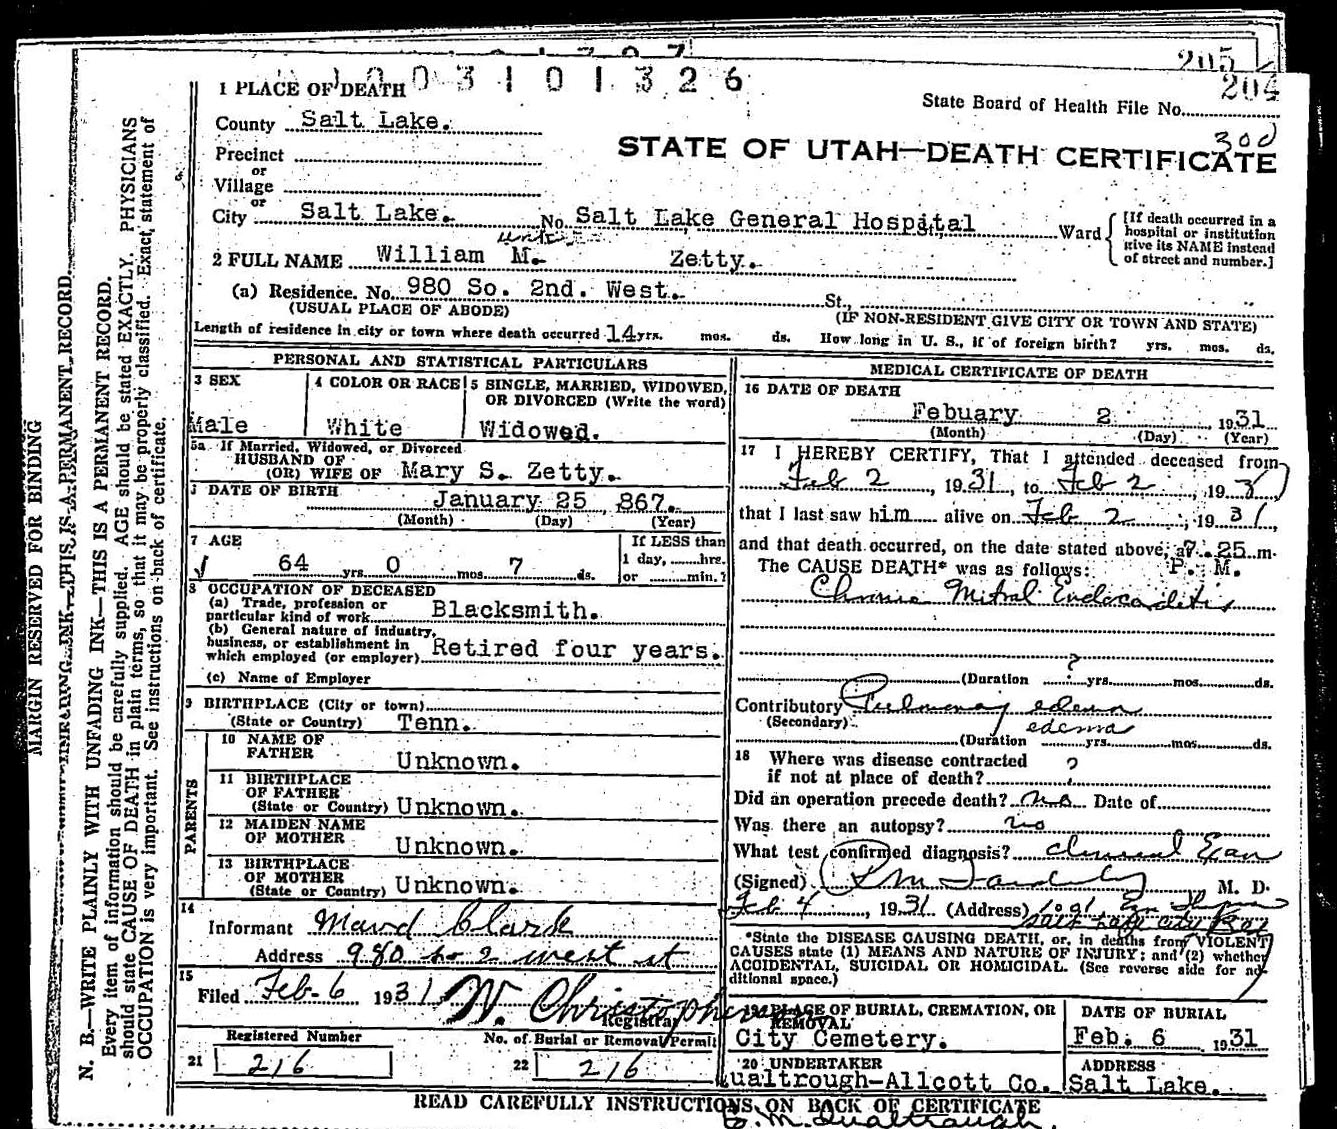 205
204
1 0 0 3 1 0 1 3 2 6
1 PLACE OF DEATH
State Board of Health File No.
300
County Salt Lake.
STATE OF UTAH—DEATH CERTIFICATE
Precinct
or
Village
or
City Salt Lake. No. Salt Lake General Hospital Ward
[If death occurred in a
hospital or institution
give its NAME instead
of street and number.]
2 FULL NAME William M. Zetty.
(a) Residence. No. 980 So. 2nd. West. St.,
(USUAL PLACE OF ABODE) (IF NON-RESIDENT GIVE CITY OR TOWN AND STATE)
Length of residence in city or town where death occurred 14 yrs. mos. ds. How long in U. S., if of foreign birth? yrs. mos. ds.
PERSONAL AND STATISTICAL PARTICULARS
3 SEX
Male
4 COLOR OR RACE
White
5 SINGLE, MARRIED, WIDOWED,
OR DIVORCED (Write the word)
Widowed.
5a If Married, Widowed, or Divorced
HUSBAND OF
(OR) WIFE OF Mary S. Zetty.
DATE OF BIRTH
January 25, 867.
(Month) (Day) (Year)
7 AGE
64 yrs. 0 mos. 7 ds.
If LESS than
1 day, hrs.
or min.?
8 OCCUPATION OF DECEASED
(a) Trade, profession or
particular kind of work Blacksmith.
(b) General nature of industry,
business, or establishment in
which employed (or employer) Retired four years.
(c) Name of Employer
9 BIRTHPLACE (City or town)
(State or Country) Tenn.
PARENTS
10 NAME OF
FATHER Unknown.
11 BIRTHPLACE
OF FATHER
(State or Country) Unknown.
12 MAIDEN NAME
OF MOTHER Unknown.
13 BIRTHPLACE
OF MOTHER
(State or Country) Unknown.
14
Informant Maud Clark
Address 980 So 2 west st
15
Filed Feb-6 1931 W. Christopherson
Registrar
Registered Number
21 216
No. of Burial or Removal Permit
22 216
MEDICAL CERTIFICATE OF DEATH
16 DATE OF DEATH
Febuary 2 1931
(Month) (Day) (Year)
17 I HEREBY CERTIFY, That I attended deceased from
Feb 2, 1931, to Feb 2, 1931
that I last saw him alive on Feb 2, 1931,
and that death occurred, on the date stated above, at 7.25 m.
The CAUSE DEATH* was as follows: P. M.
Chronic Mitral Endocarditis
?
(Duration yrs. mos. ds.
Contributory Pulmonary edema
(Secondary) edema
(Duration yrs. mos. ds.
18 Where was disease contracted
if not at place of death? ?
Did an operation precede death? no Date of
Was there an autopsy? no
What test confirmed diagnosis? clinical Exam
(Signed) M. D.
Feb 4, 1931 (Address)
Salt Lake City
*State the DISEASE CAUSING DEATH, or, in deaths from VIOLENT
CAUSES state (1) MEANS AND NATURE OF INJURY; and (2) whether
ACCIDENTAL, SUICIDAL OR HOMICIDAL. (See reverse side for ad-
ditional space.)
19 PLACE OF BURIAL, CREMATION, OR
REMOVAL
City Cemetery.
DATE OF BURIAL
Feb. 6 1931
20 UNDERTAKER
Qualtrough-Allcott Co.
ADDRESS
Salt Lake.
READ CAREFULLY INSTRUCTIONS ON BACK OF CERTIFICATE
E. M. Qualtrough.
MARGIN RESERVED FOR BINDING
N. B.—WRITE PLAINLY WITH UNFADING INK—THIS IS A PERMANENT RECORD.
Every item of information should be carefully supplied. AGE should be stated EXACTLY. PHYSICIANS
should state CAUSE OF DEATH in plain terms, so that it may be properly classified. Exact statement of
OCCUPATION is very important. See instructions on back of certificate.